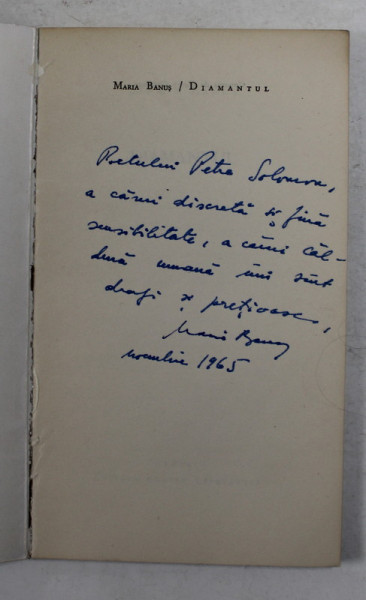 MARIA BANUȘ / DIAMANTUL
Poetului Petre Solomon,
a cărui discretă și fină
sensibilitate, a cărui căl-
dură umană îmi sînt
dragi și prețioase,
Maria Banuș
noembrie 1965